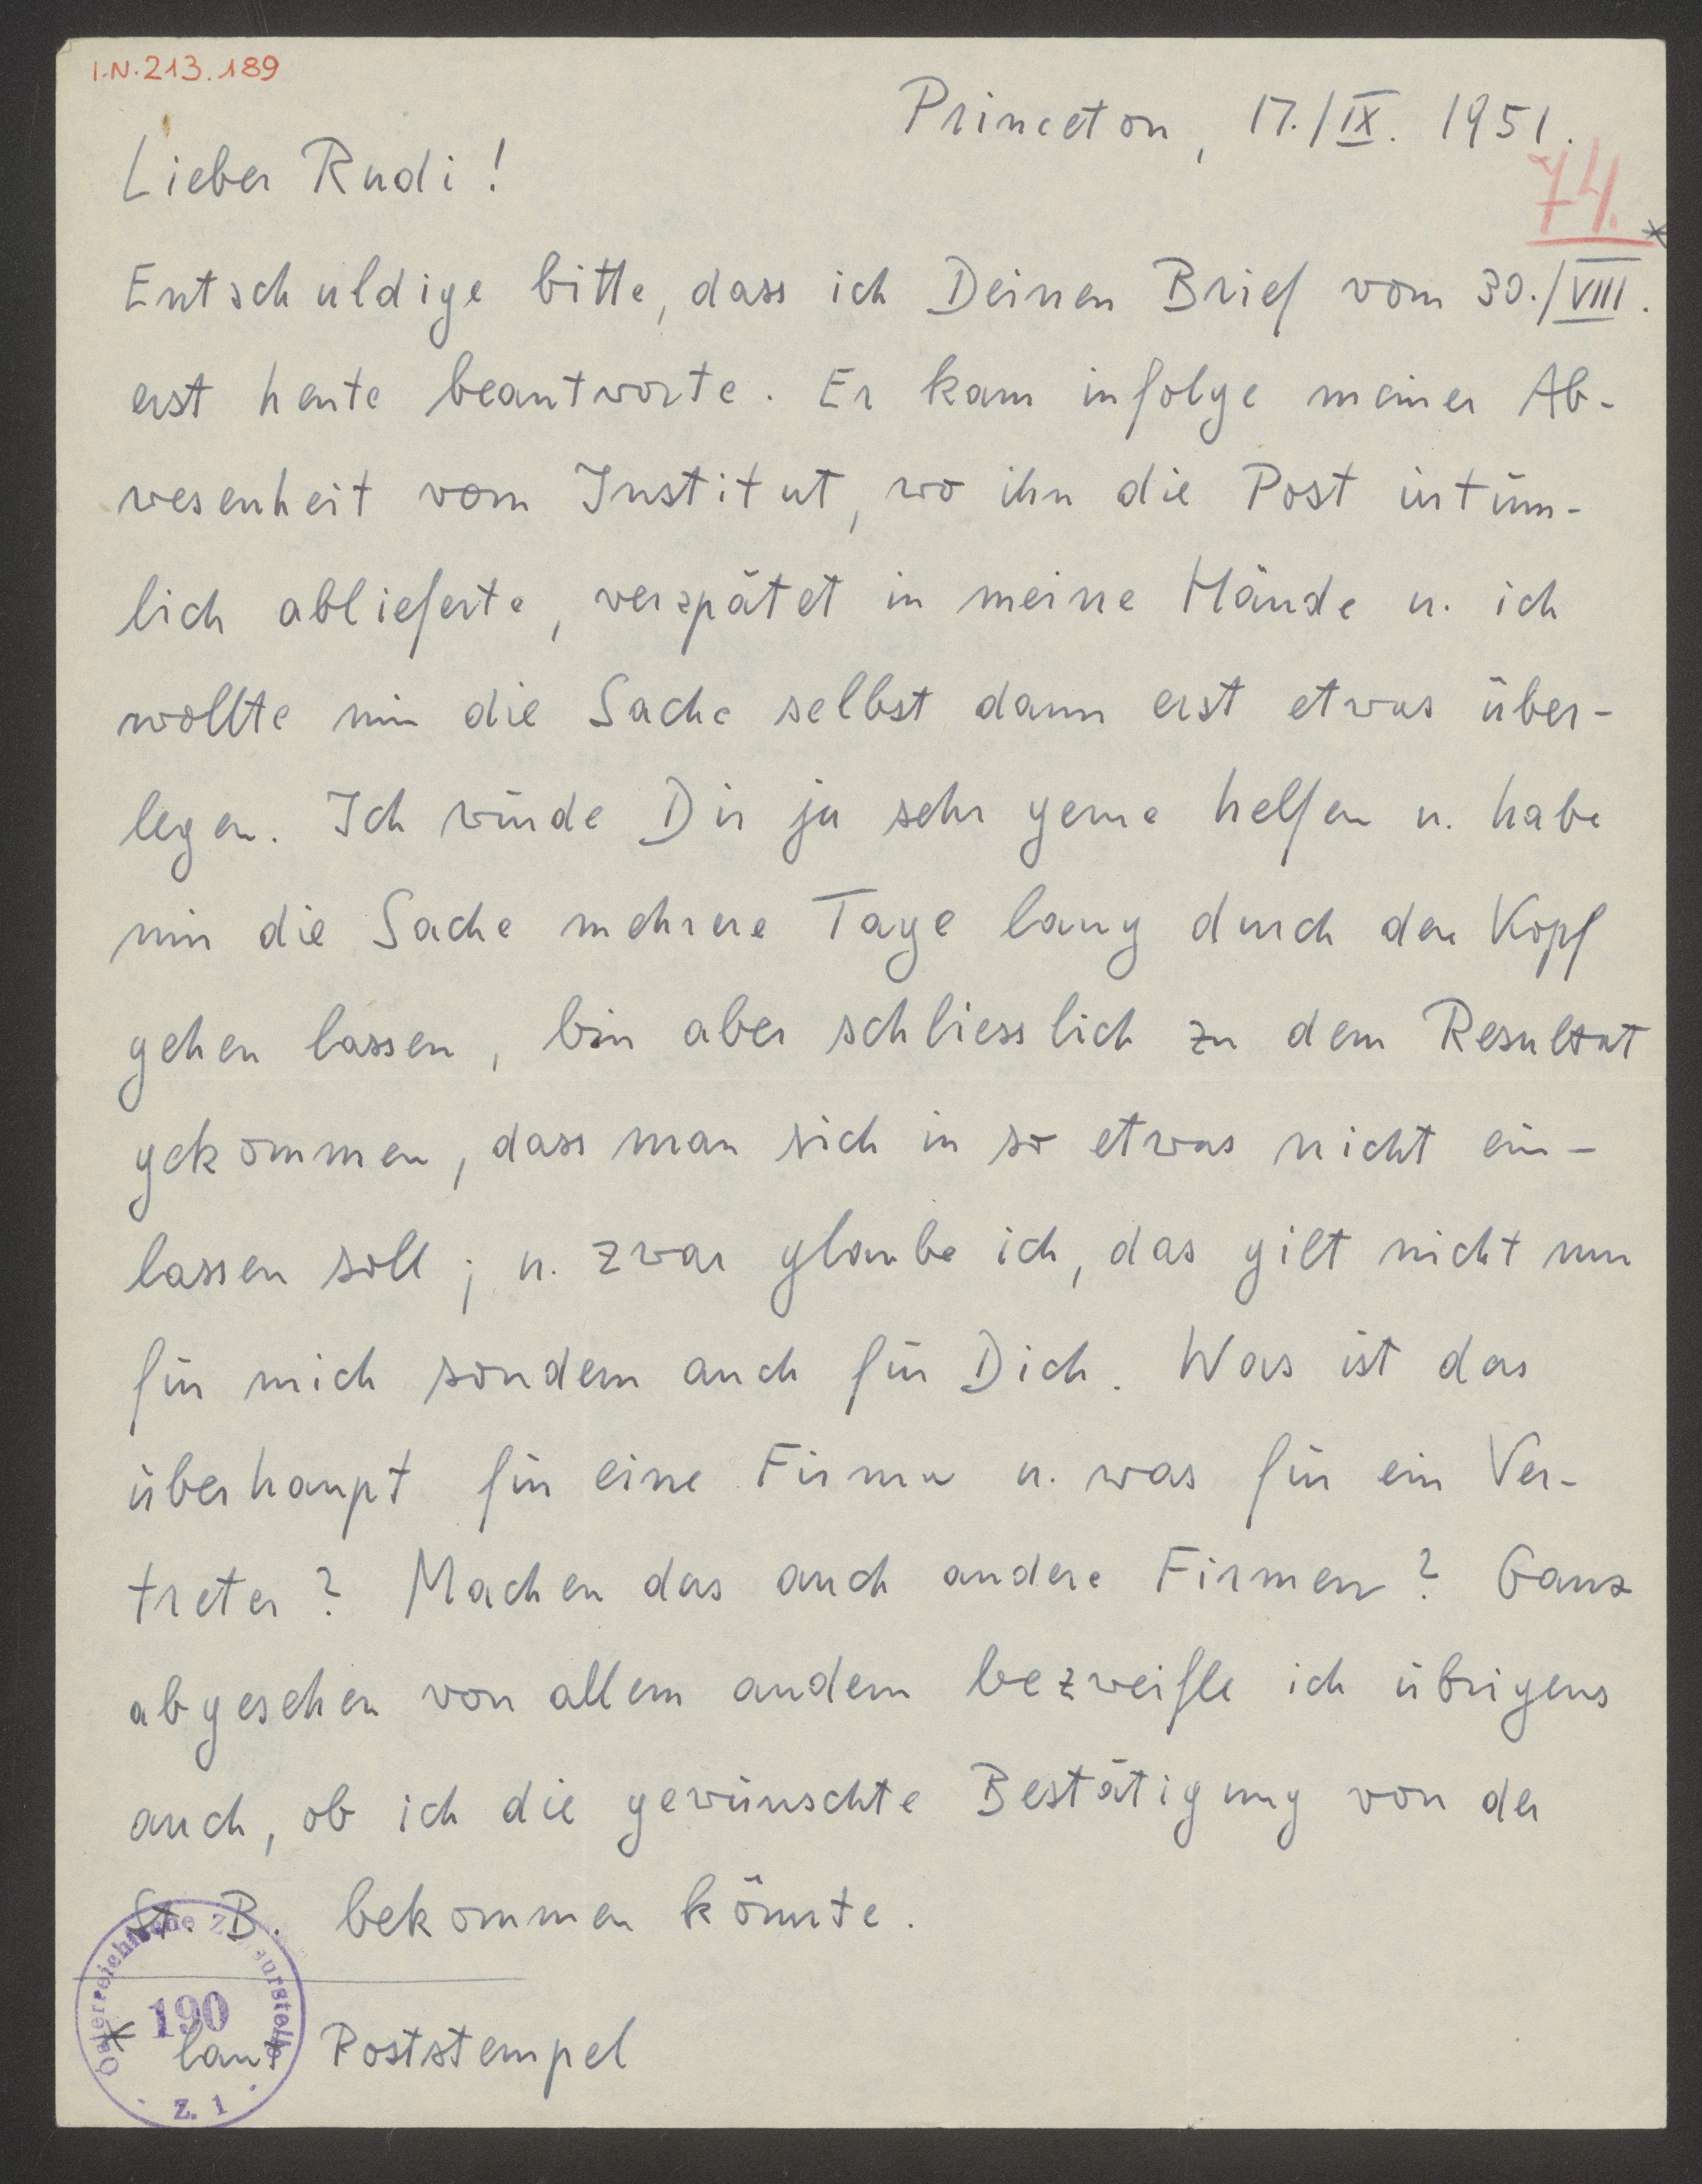 I.N. 213.189
Princeton, 17./IX. 1951.
74.
Lieber Rudi!
Entschuldige bitte, dass ich Deinen Brief vom 30./VIII.*
erst heute beantworte. Er kam infolge meiner Ab-
wesenheit vom Institut, wo ihn die Post irrtüm-
lich ablieferte, verspätet in meine Hände u. ich
wollte mir die Sache selbst dann erst etwas über-
legen. Ich würde Dir ja sehr gerne helfen u. habe
mir die Sache mehrere Tage lang durch den Kopf
gehen lassen, bin aber schliesslich zu dem Resultat
gekommen, dass man sich in so etwas nicht ein-
lassen soll; u. zwar glaube ich, das gilt nicht nur
für mich sondern auch für Dich. Was ist das
überhaupt für eine Firma u. was für ein Ver-
treter? Machen das auch andere Firmen? Ganz
abgesehen von allem andern bezweifle ich übrigens
auch, ob ich die gewünschte Bestätigung von der
St. B. bekommen könnte.
* laut Poststempel
Österreichische Zensurstelle
190
Z. 1